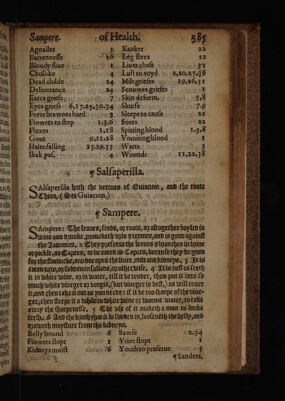 Sampere. of Health. 385
Agnailes 3 Kankre 22
Barrennesse 26 Leg sores 22
Bloody flixe 1 Liver chaft 32
Chollike 4 Lust to voyd 2,20,27,36
Dead childe 24 Milt griefes 19,26,31
Deliverance 24 Senowes griefes 1
Eares griefs 7 Skin deform. 7,8
Eyes griefs 6,17,25,30,34 Skurfe 7,9
Fete brawnes hard 3 Sleepe to cause 22
Flowers to stop 1,3,6 Sores 22
Fluxes 1,18 Spitting blood 1,5,8
Gout 9,21,28 Vomiting blood 1
Haire falling 23,29,33 Warts 3
4 Wounds 11,22,38
¶ Salsaperilla.
Salsaperilla hath the vertues of Guiacum, and the roote
China, (See Guiacum.)
¶ Sampere.
Sampere: The leaves, seeds, or roots, or altogether boyled in
wine and drunke, provoketh urin & termes, and is good against
the Jaundies. 2 They preserve the leaves & branches in brine
or pickle, as Capers, to be eaten as Capers: because they be good
for the stomacke, and doe open the liver, milt and kidneys. 3 It is
eaten raw, or sodden in sallads, or otherwise. 4 It is best to seeth
it in white wine, or in water, till it be tender, then put it into so
much white vineger or verguis, (but vineger is best,) as will cover
it and then take it out as you need: if it be too sharpe of the vine-
ger, then steepe it a while in white wine or warme water, to take
away the sharpenesse. 5 The use of it maketh a man to looke
fresh. 6 And the broth that it is sodden in, looseneth the belly, and
draweth moysture from the kidneys.
Belly bound 6 Sawse 2.34
Flowers stopt 1 Vrine stopt 1
Kidneys moist 6 Youth to preserve 5
¶ Sanders,